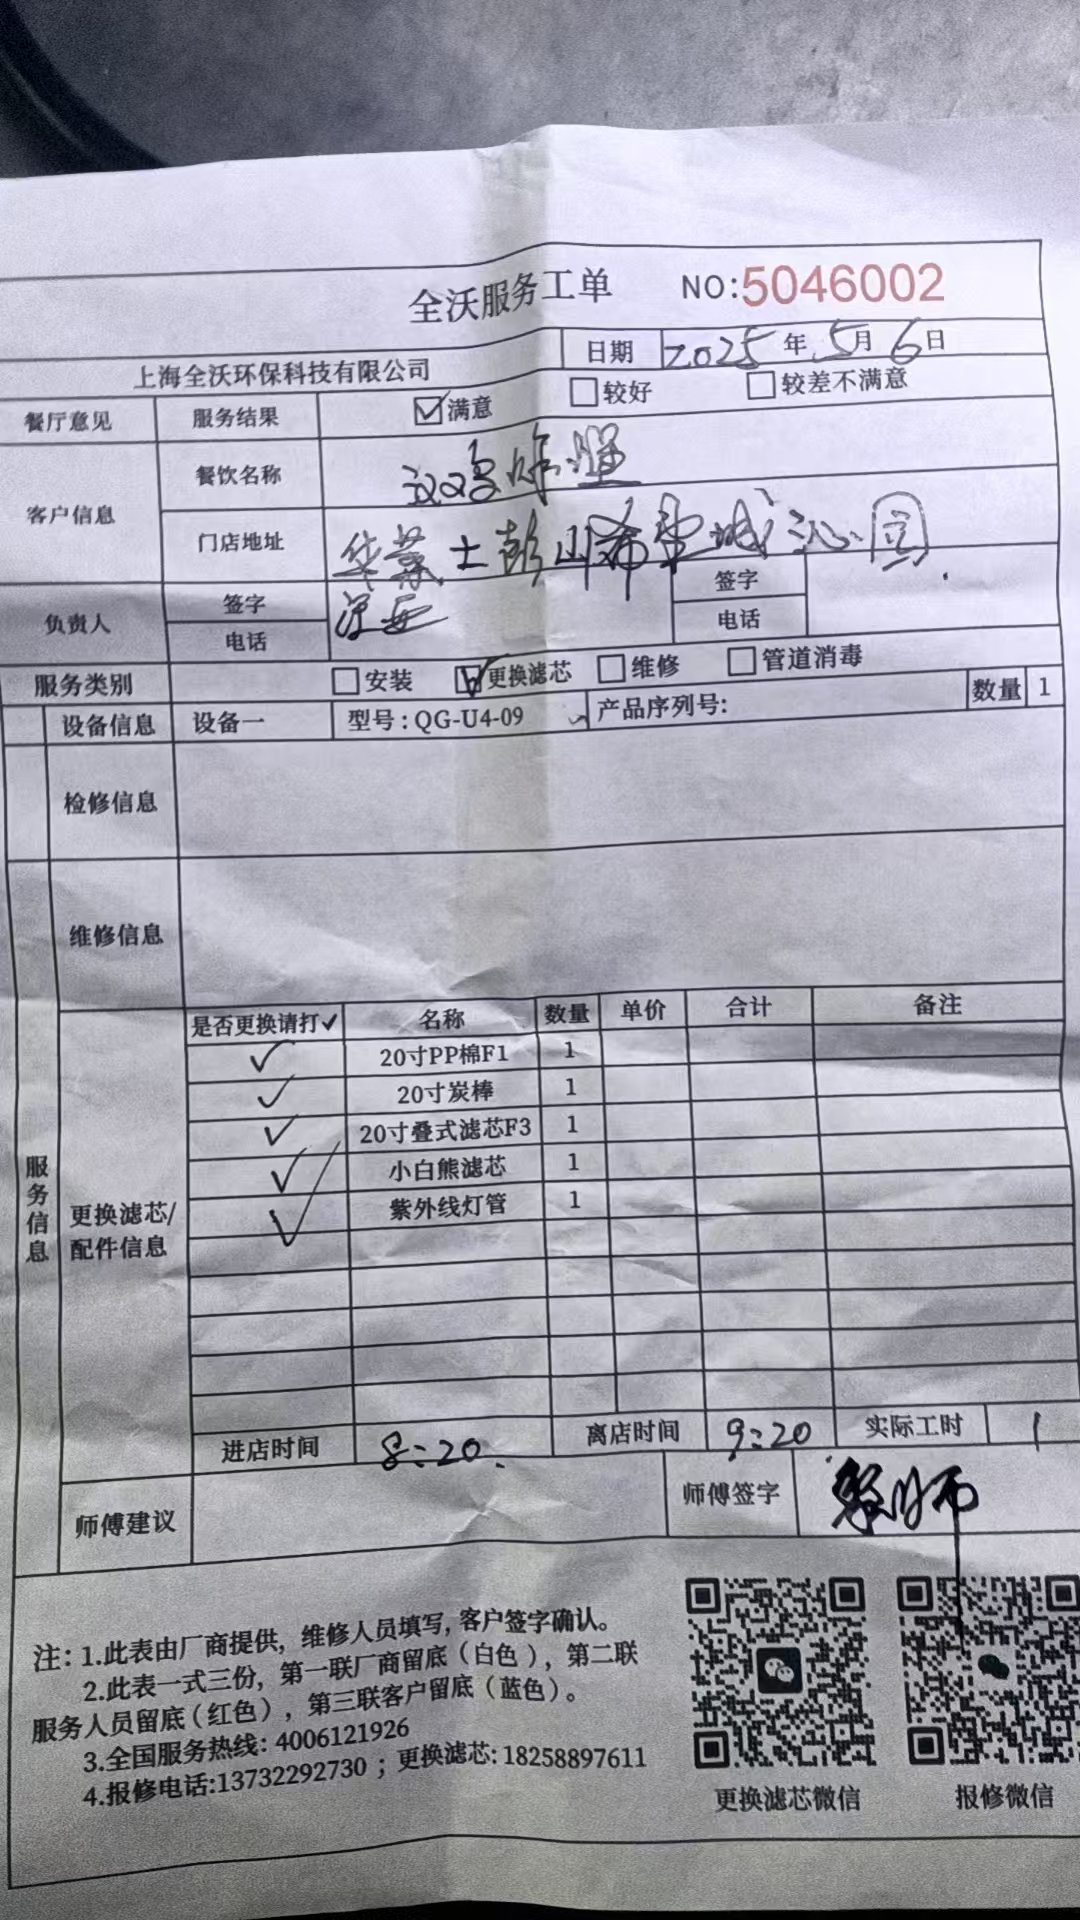 全沃服务工单 NO:5046002
上海全沃环保科技有限公司 日期 2025年5月6日
餐厅意见 服务结果 ☑满意 □较好 □较差不满意
客户信息 餐饮名称
门店地址 华莱士彭山希望城沁园
负责人 签字 签字
电话 电话
服务类别 □安装 ☑更换滤芯 □维修 □管道消毒
设备信息 设备一 型号：QG-U4-09 产品序列号： 数量 1
检修信息
维修信息
服务信息
更换滤芯/配件信息
是否更换请打✓ 名称 数量 单价 合计 备注
✓ 20寸PP棉F1 1
✓ 20寸炭棒 1
✓ 20寸叠式滤芯F3 1
✓ 小白熊滤芯 1
✓ 紫外线灯管 1
进店时间 8:20 离店时间 9:20 实际工时 1
师傅建议 师傅签字
注：1.此表由厂商提供，维修人员填写，客户签字确认。
2.此表一式三份，第一联厂商留底（白色），第二联
服务人员留底（红色），第三联客户留底（蓝色）。
3.全国服务热线：4006121926
4.报修电话:13732292730；更换滤芯：18258897611
更换滤芯微信 报修微信